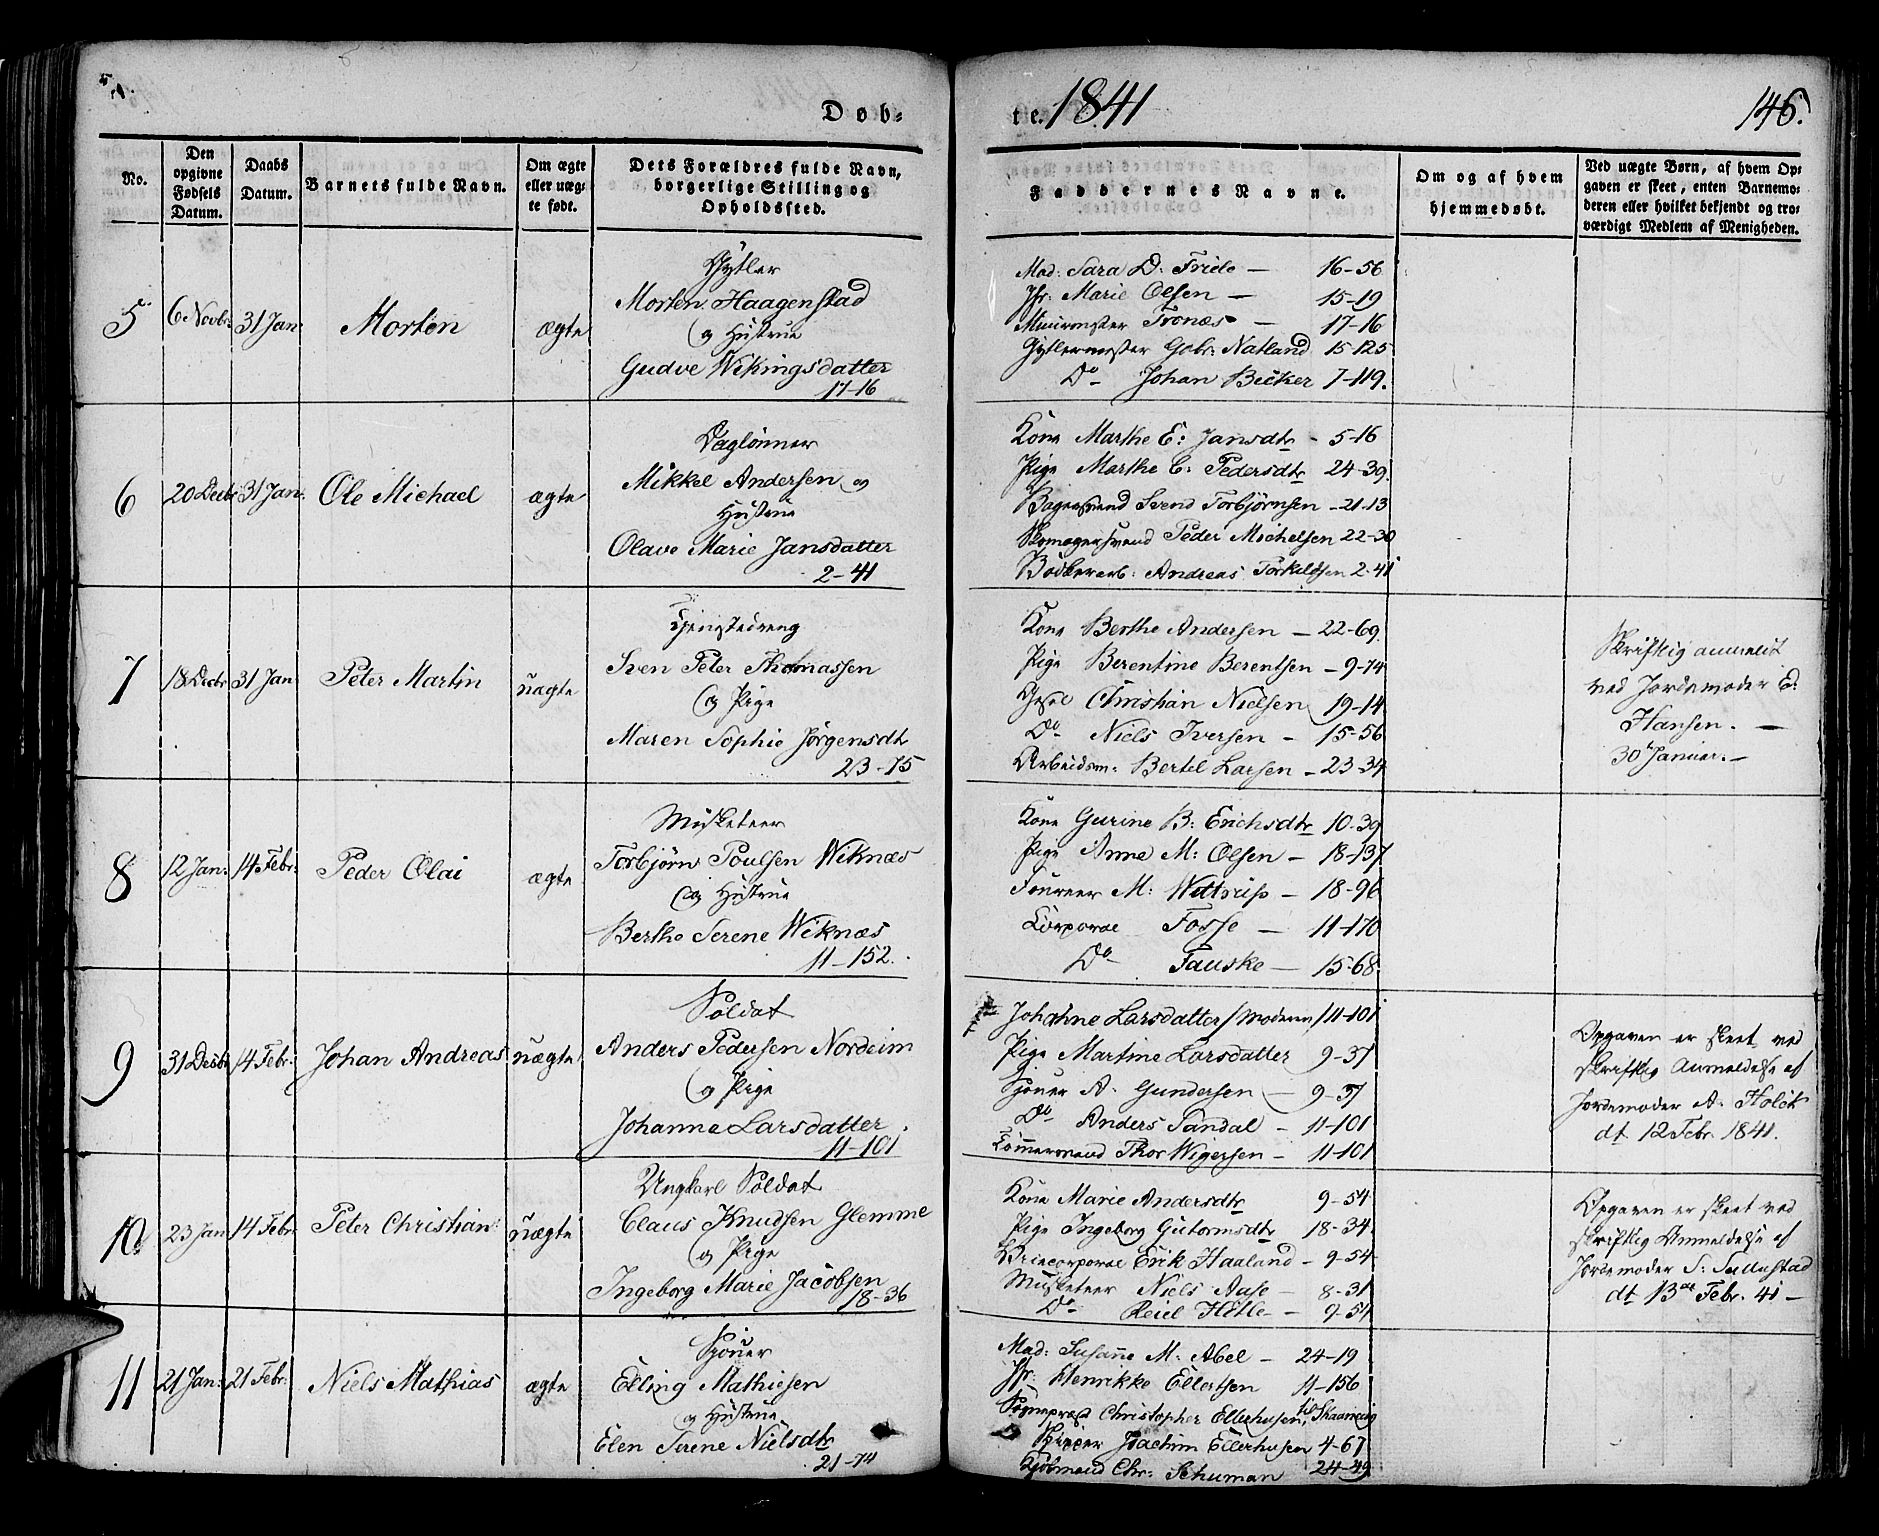 Døb-
te. 1841
146.
No.
Den opgivne Fødsels Datum.
Daabs Datum.
Barnets fulde Navn.
Om ægte eller uæg- te født.
Dets Forældres fulde Navn, borgerlige Stilling og Opholdssted.
Faddernes Navne.
Om og af hvem hjemmedøbt.
Ved uægte Børn, af hvem Op- gaven er skeet, enten Barnemo- deren eller hvilket bekjendt og tro- værdigt Medlem af Menigheden.
5 6 Novbr: 31 Jan: Morten ægte
Gytler
Morten Haagenstad
og Hustrue
Gudve Wikingsdatter
17-16
Mad: Sara D: Friele — 16-56
Jfr: Marie Olsen — 15-19
Tronæs — 17-16
Gytlermester Gabr: Natland 15-125
Do Johan Becker 7-119.
6 20 Decbr 31 Jan: Ole Michael ægte
Daglønner
Mikkel Andersen og
Hustrue
Olave Marie Jansdatter
2-41
Kone Marthe E: Jansdtr - 5-16
Pige Marthe C: Pedersdtr 24-39.
Bagersvend Svend Torbjørnsen - 21-13
Skomagersvend Peder Michelsen 22-30
Bødkerarb: Andreas Torkildsen 2-41
7 18 Decbr 31 Jan Peter Martin uægte
Tjenestedreng
Sven Peter Thomassen
og Pige
Maren Sophie Jørgensdtr
23-75
Kone Berthe Andersen — 22-69.
Pige Berentine Berentsen - 9-74
Christian Nielsen 19-14
Do Niels Iversen - 15-56
Arbeidsm: Bertel Larsen - 23-34
Skriftlig anmeldt
ved Jordemoder E:
Hansen. —
30te Januar. —
8 12 Jan: 14 Febr: Peder Olai ægte
Musketeer
Torbjørn Poulsen Wiknæs
og Hustrue
Berthe Serene Wiknæs
11-152.
Kone Gurine B: Erichsdtr 10-39
Pige Anne M: Olsen - 18-137
Foureer M: Wittrup - 18-96
Corporal Fosse — 11-170
Do Fauske — 15-68.
9 31 Decbr 14 Febr: Johan Andreas uægte
Soldat
Anders Pedersen Nordeim
og Pige
Johanne Larsdatter
11-101
Johanne Larsdatter / Moderen / 11-101
Pige Martine Larsdatter 9-37
Sjouer A. Gundersen — 9-37
Do Anders Sandal - 11-101
Tømmermand Thor Wigersen - 11-101
Opgaven er skeet ved
skriftlig Anmeldelse af
Jordemoder A. Holck
dt 12 Febr. 1841.
10 23 Jan 14 Febr Peter Christian: uægte
Ungkarl Soldat
Claus Knudsen Glemme
og Pige
Ingeborg Marie Jacobsen
18-36
Kone Marie Andersdtr 9-54
Pige Ingeborg Gutormsdtr 18-34
Erik Haaland - 9-54
Musketeer Niels Aase - 8-31
Do Reiel Hetle - 9-54
Opgaven er skeet ved
skriftlig Anmeldelse af
Jordemoder S: Sellestad
dt 13de Febr. 41 —
11 21 Jan: 21 Febr: Niels Mathias ægte
Sjouer
Elling Mathiesen
og Hustrue
Elen Serene Nielsdtr
21-74
Mad: Susanne M: Abel — 24-19
Jfr: Henrikke Ellertsen 11-156
Sognepræst Christopher Ellerhusen, til Skaanevig
Skipper Joachim Ellerhusen 4-67
Kjøbmand Chr: Schuman 24-49